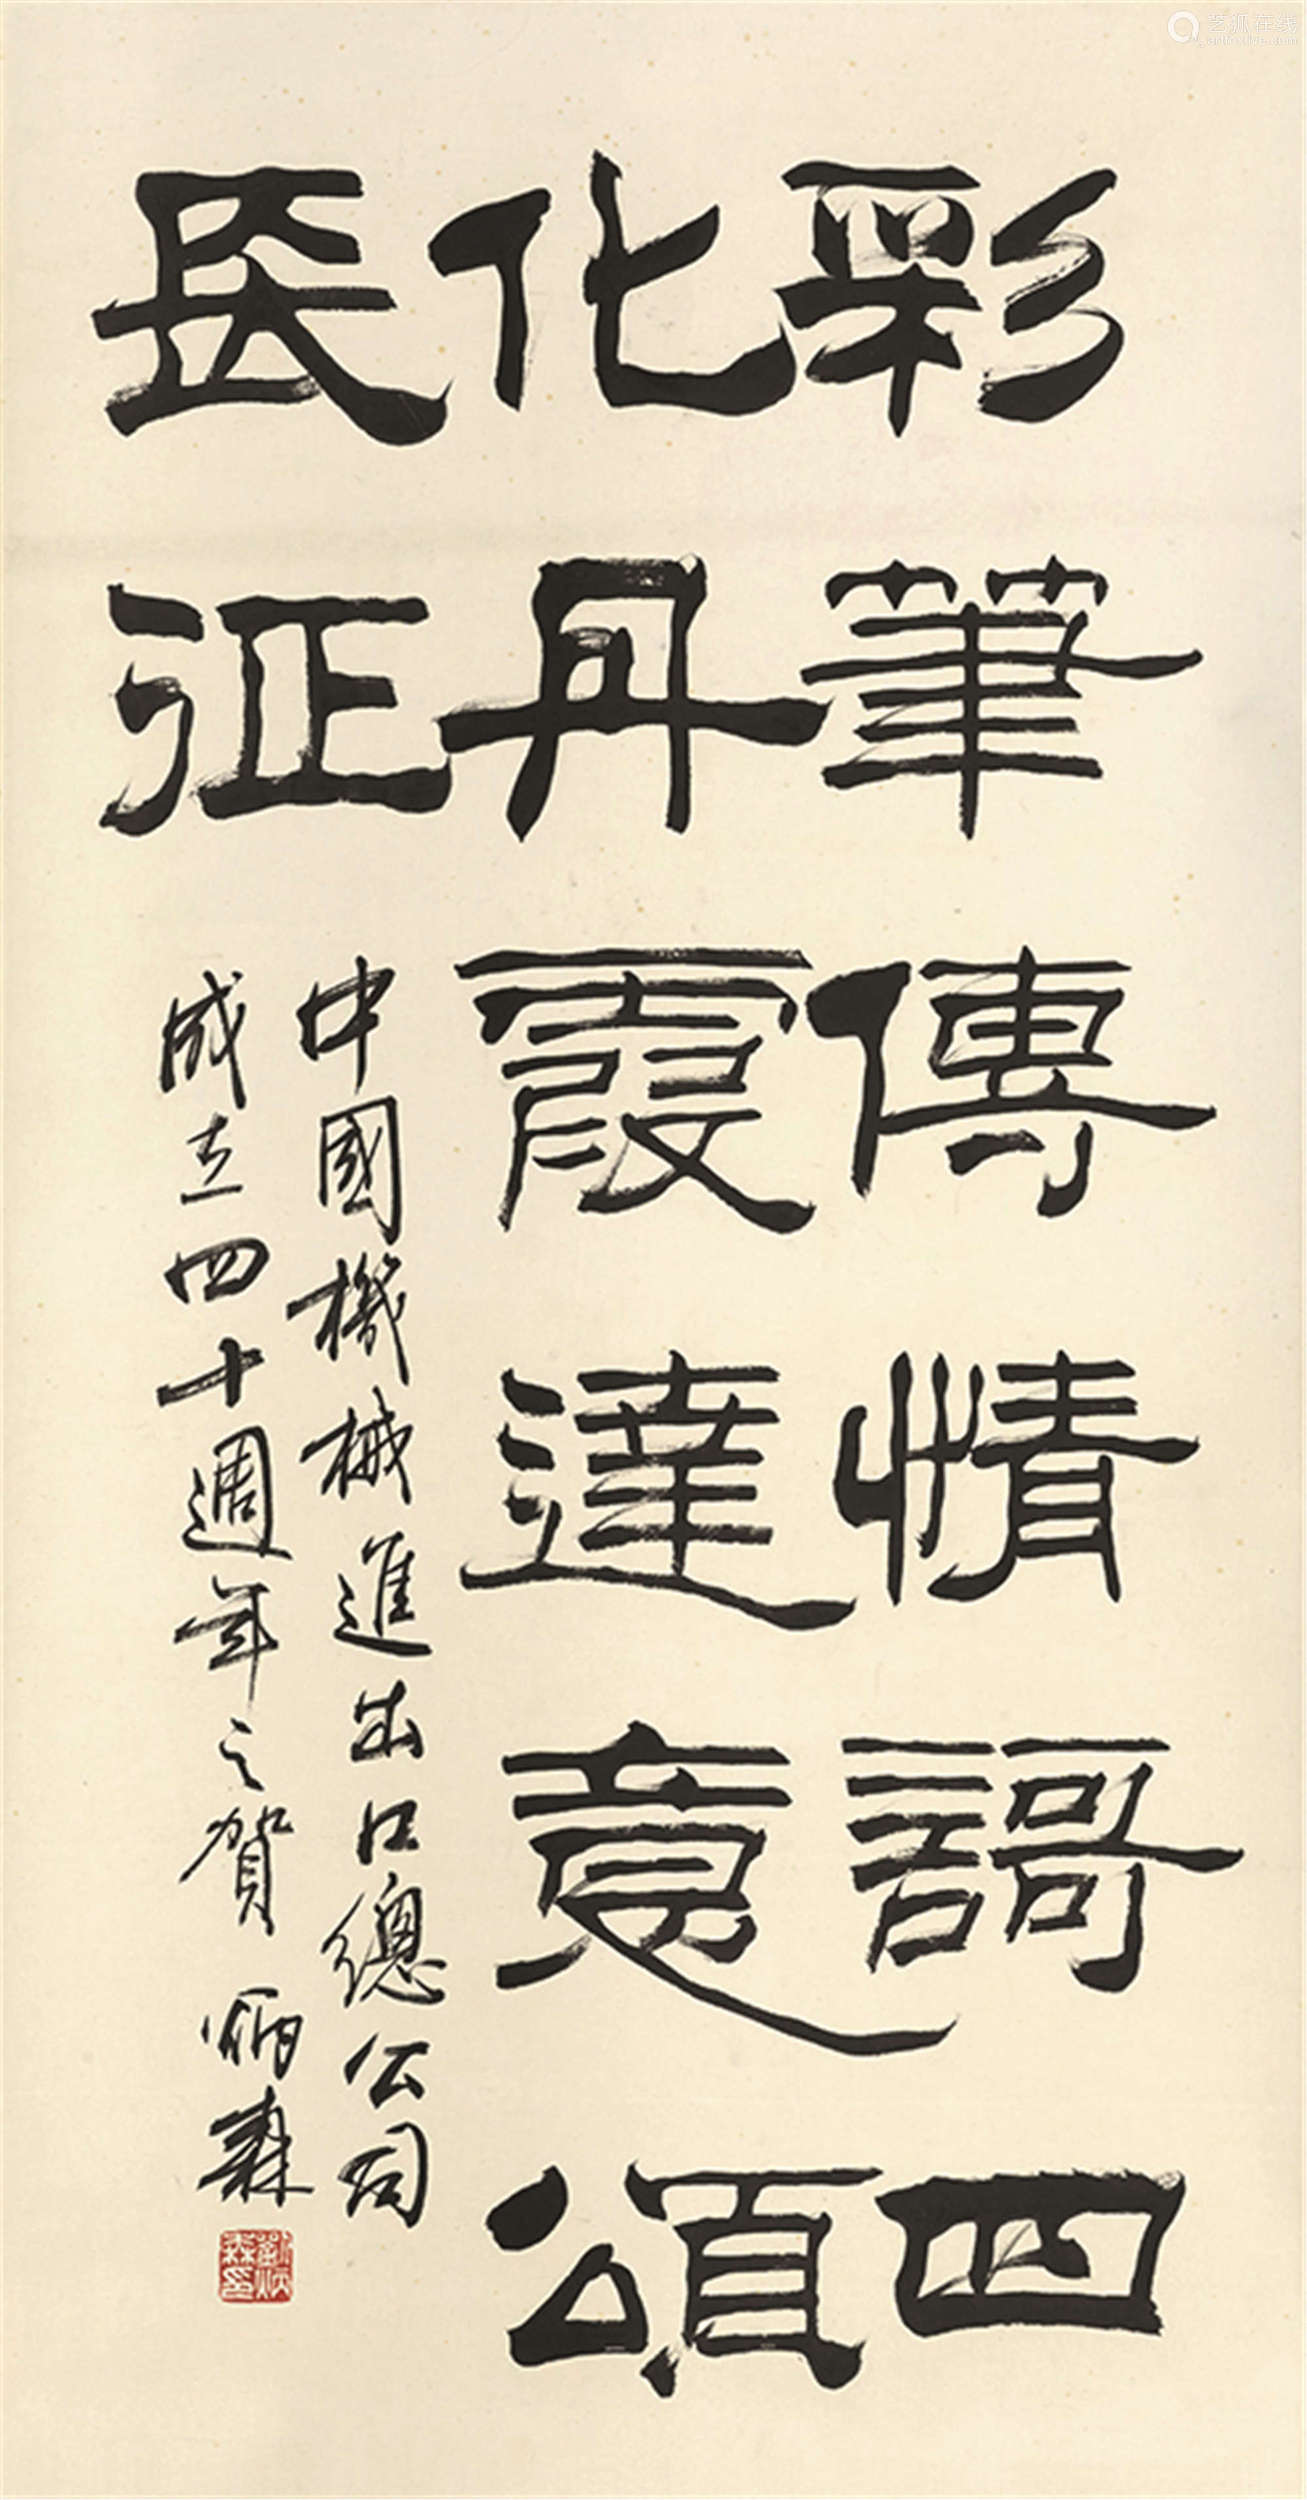 彩筆傳情謌四
化丹霞達意頌
長征
中國機械進出口總公司
成立四十週年之賀 炳森
劉炳森印
艺狐在线